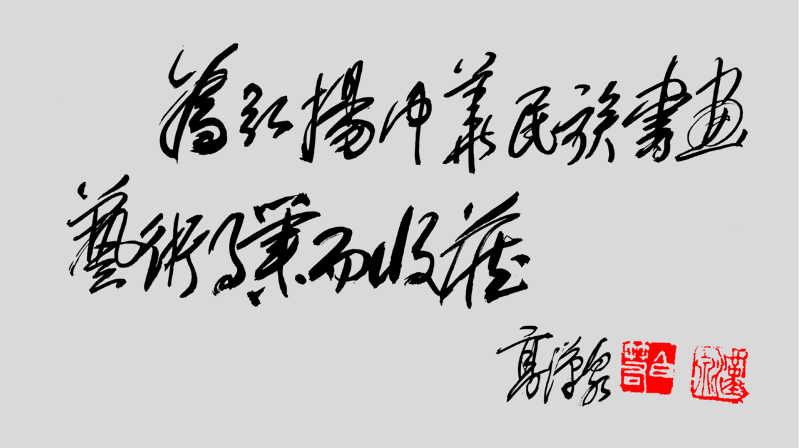 為弘揚中華民族書畫
藝術事業而收藏